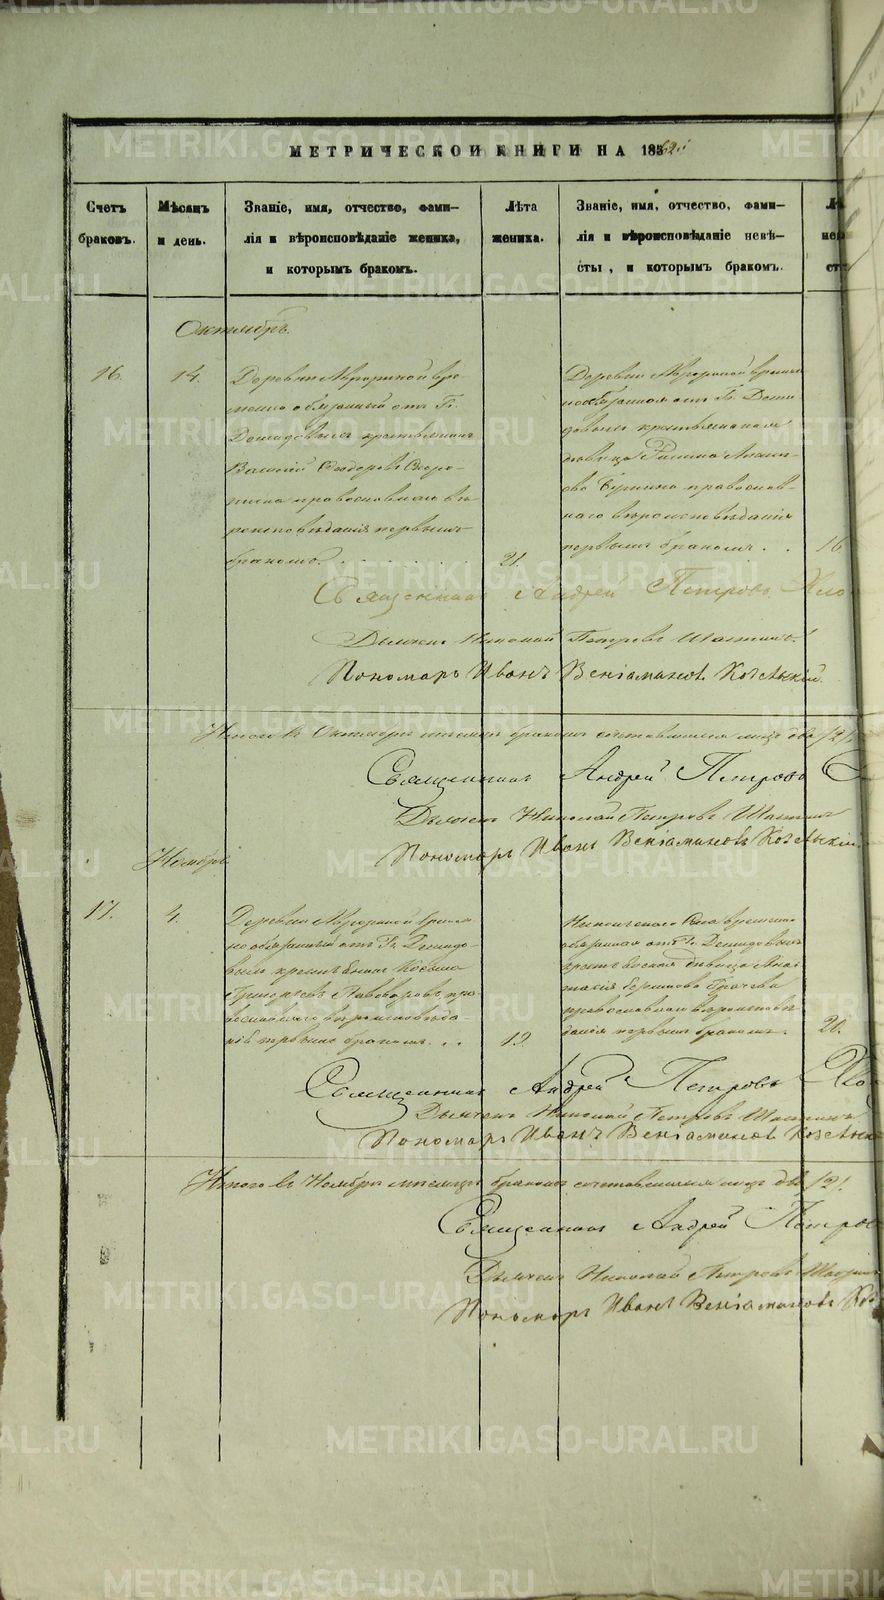 МЕТРИЧЕСКОЙ КНИГИ НА 1862й
Счетъ браковъ.
Мѣсяцъ и день.
Званіе, имя, отчество, фами-
лія и вѣроисповѣданіе жениха,
и которымъ бракомъ.
Лѣта жениха.
Званіе, имя, отчество, фами-
лія и вѣроисповѣданіе невѣ-
сты, и которымъ бракомъ.
Октябрь.
16. 14.
Деревни Аврориной вре-
менно обязанный отъ Г.
Демидовыхъ крестьянинъ
Василій Ѳеодоровъ
православнаго вѣ-
роисповѣданія первымъ
бракомъ.
21.
Деревни Аврориной времен-
нообязанная отъ Г. Деми-
довыхъ крестьянская
дѣвица
православ-
наго вѣроисповѣданія
первымъ бракомъ.
16
Священникъ Андрей Петровъ
Дьячекъ Николай Петровъ
Пономарь Иванъ Веніаминовъ Козельскій.
Итого въ Октябрѣ мѣсяцѣ бракомъ сочетавшихся лицъ два /2/
Священникъ Андрей Петровъ
Дьячекъ Николай Петровъ
Пономарь Иванъ Веніаминовъ Козельскій
Ноябрь
17. 4.
Деревни Аврориной времен-
но обязанный отъ Г. Демидо-
выхъ крестьянинъ Косьма
Григорьевъ Пивоваровъ, пра-
вославнаго вѣроисповѣда-
нія первымъ бракомъ.
19.
села временно
обязанная отъ Г. Демидовыхъ
крестьянская дѣвица Анас-
тасія
православнаго вѣроисповѣ-
данія первымъ бракомъ.
20.
Священникъ Андрей Петровъ
Дьячекъ Николай Петровъ
Пономарь Иванъ Веніаминовъ Козельск
Итого въ Ноябрѣ мѣсяцѣ бракомъ сочетавшихся лицъ два /2/.
Священникъ Андрей Петров
Дьячекъ Николай Петровъ
Пономарь Иванъ Веніаминовъ Коз
METRIKI.GASO-URAL.RU